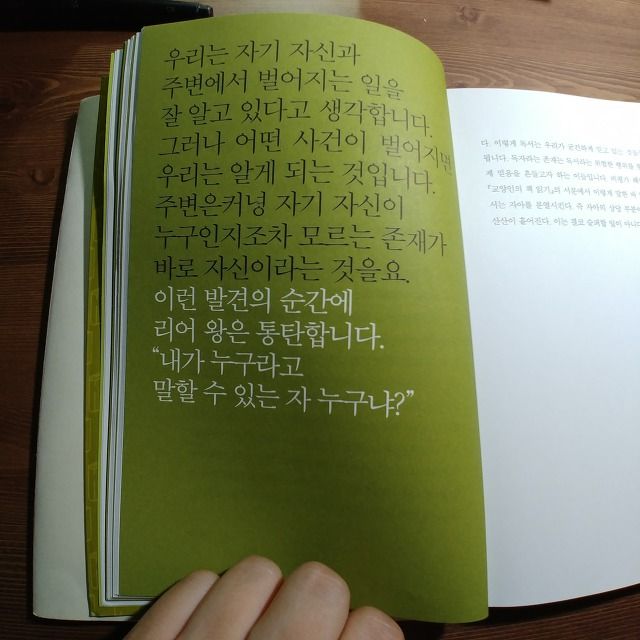 우리는 자기 자신과
주변에서 벌어지는 일을
잘 알고 있다고 생각합니다.
그러나 어떤 사건이 벌어지면
우리는 알게 되는 것입니다.
주변은커녕 자기 자신이
누구인지조차 모르는 존재가
바로 자신이라는 것을요.
이런 발견의 순간에
리어 왕은 통탄합니다.
“내가 누구라고
말할 수 있는 자 누구냐?”
다. 이렇게 독서는 우리가 굳건하게 믿고 있는
됩니다. 독자라는 존재는 독서라는 위험한 행위를
제 믿음을 흔들고자 하는 이들입니다.
서는 자아를 분열시킨다. 즉 자아의 상당 부분이
산산이 흩어진다. 이는 결코 슬퍼할 일이 아니다